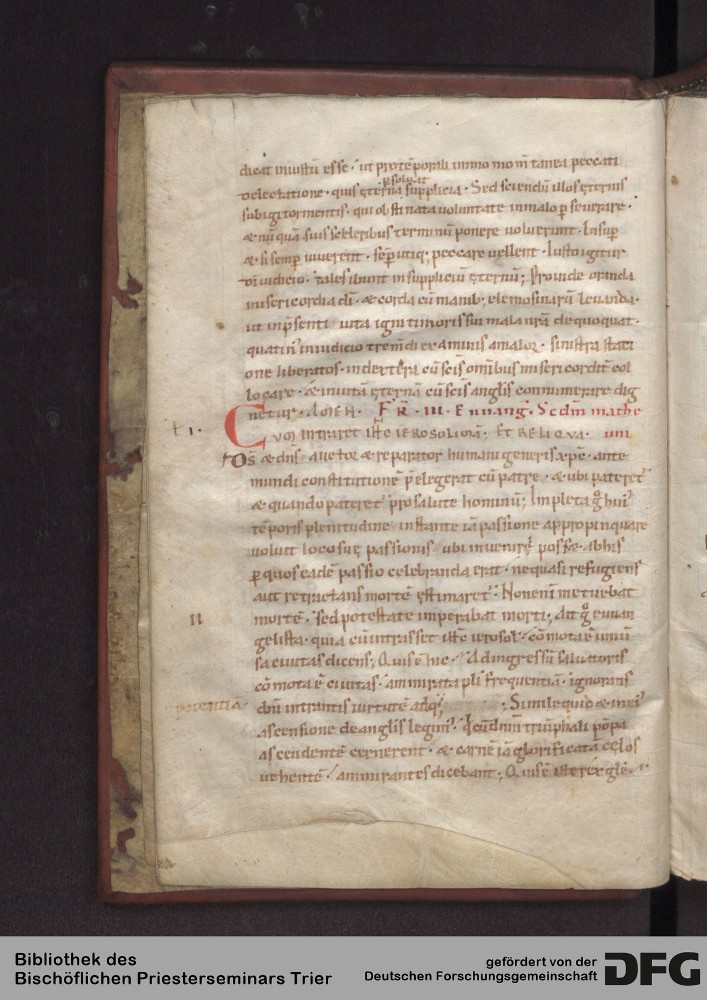 dicat iniustū esse · ut pro tēporali immo momītanea peccati
psoluat
delectatione · quis ęterna supplicia · Sed sciendū illos ęternis
subigi tormentis · qui obstinata uoluntate in malo pseuerare ·
& nūquā suis sceleribus terminū ponere uoluerunt · Insup
& si semp uiuerent · semp utiq; peccare uellent · Iusto igitur
dī iudicio · tales ibunt in suppliciū ęternū; Proinde oranda
misericordia dī · & corda cū manib; elemosinarū leuanda ·
ut in psenti uita igni timoris sui mala nrā dequoquat ·
quatin' in iudicio tremdi examinis a malor · sinistra stati
one liberatos · in dextera cū scīs omībus misericordit col
locare · & in uitā ęternā cū scīs anglis connumerare dig
netur · AMEN · FR · III · Euuang · Scdm mathe
um
t 1 ·
Cum intraret ihc ierosolimā; ET RELIQVA ·
Ds & dns auctor & reparator humani generis xpc · ante
mundi constitutionē pelegerat cū patre · & ubi pateret
& quando pateret pro salute hominū; Impleta g hui
tēporis plenitudine instante iā passione appropinquare
uoluit loco suę passionis ubi inueniri posset ab his
p quos eadē passio celebranda erat · ne quasi refugiens
aut retractans mortē ęstimaret · Non enī metuebat
II
mortē · sed potestate imperabat morti · Ait g euuan
gelista · quia cū intrasset ihc ierosol · cōmota ē uniū
sa ciuitas dicens; Quis ē hic · Ad ingressū saluatoris
cōmota ē ciuitas · ammirata pli frequentiā · ignorans
potentiā
dnī intrantis uirtutē adq; ; Simile quid & in ei
ascensione de anglis legim · Qui cū dnm triūphali pōpa
ascendentē cernerent · & carnē iā glorificatā cęlos
uehentē · ammirantes dicebant; Quis ē iste rex glę ·
Bibliothek des
Bischöflichen Priesterseminars Trier
gefördert von der
Deutschen Forschungsgemeinschaft
DFG